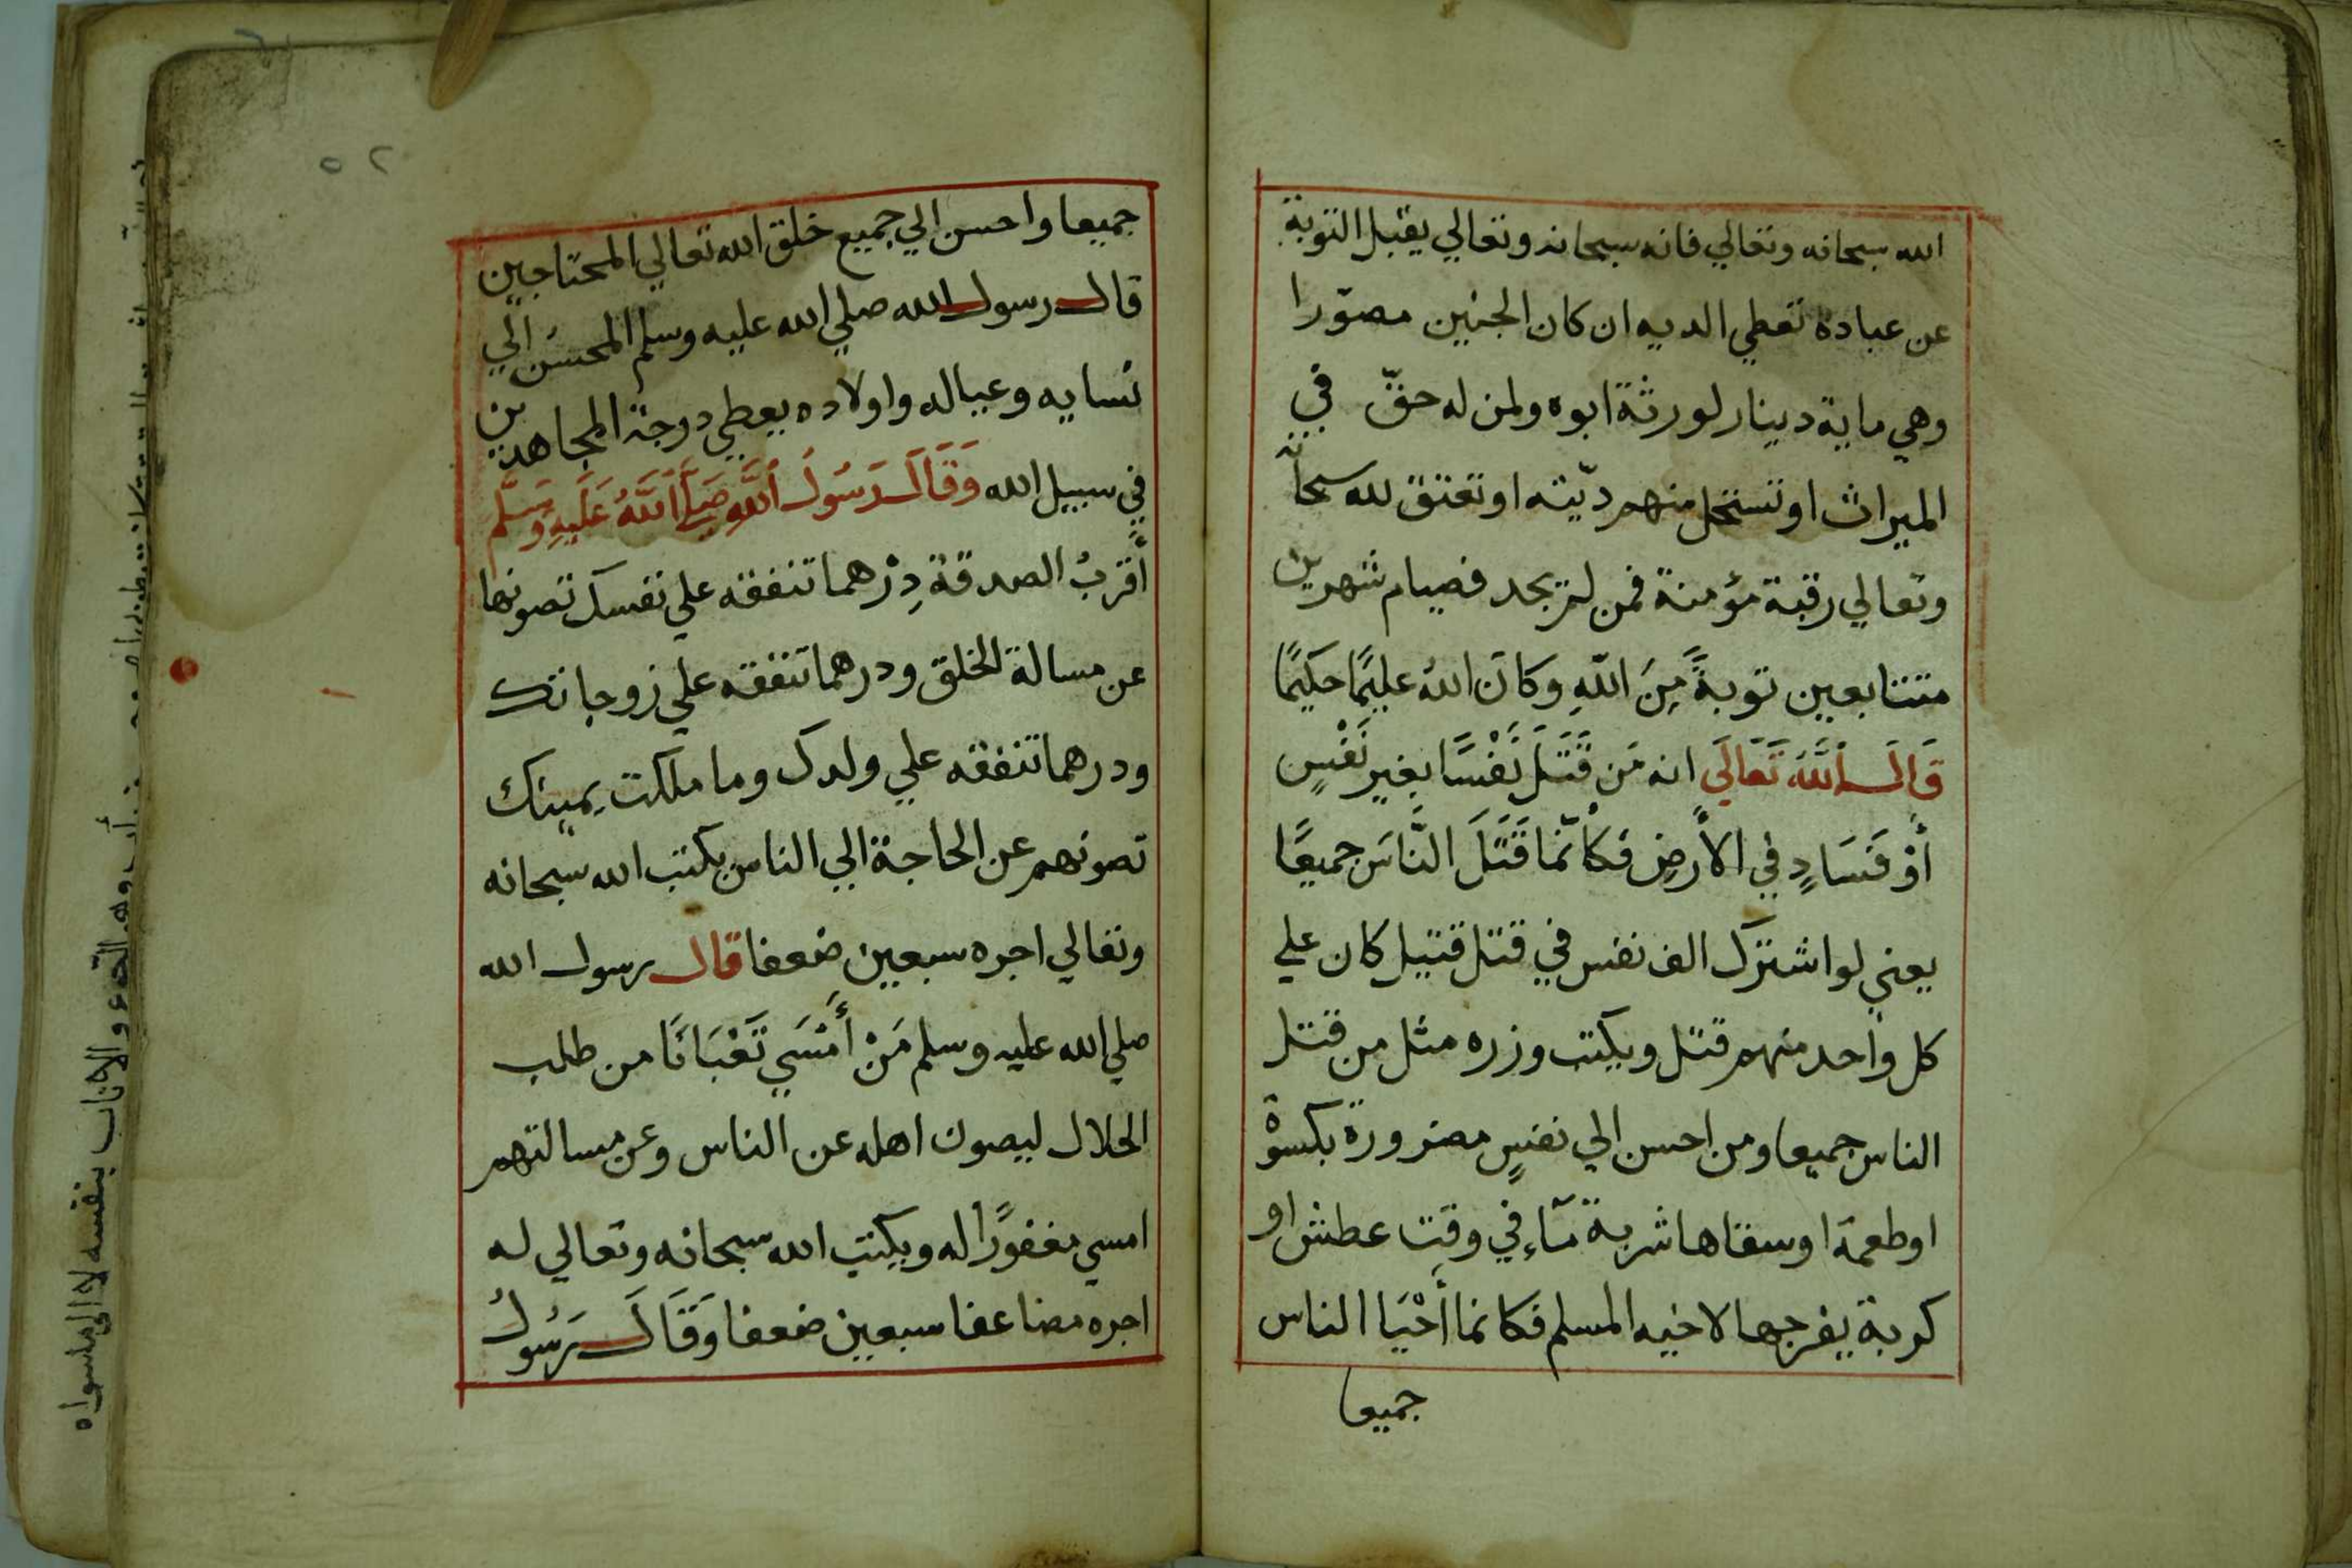 الله سبحانه وتعالي فانه سبحانه وتعالي يقبل التوبة
عن عباده تعطي الديه ان كان الجنين مصوّرا
وهي ماية دينار لورثة ابوه ولمن له حقّ في
الميراث او تستحل منهم ديّته او تعتق لله سبحانه
وتعالي رقبة مؤمنة فمن لم يجد فصيام شهرين
متتابعين توبةً مِنَ اللّهِ وكانَ اللهُ عليمًا حكيمًا
قَالَ اللَّهُ تَعَالَى انه مَن قَتَلَ نَفْسًا بغيرِ نَفْسٍ
أوْ فَسَادٍ في الأرضِ فكأنّما قَتَلَ النَّاسَ جميعًا
يعني لو اشترك الف نفس في قتل قتيل كان علي
كل واحد منهم قتل ويكتب وزره مثل من قتل
الناس جميعا ومن احسن الي نفسٍ مضرورة بكسوة
او طعمة او سقاها شربة مآءٍ في وقت عطش او
كربة يفرجها لاخيه المسلم فكانما أحْيَا الناس
جميعا
٥٢
جميعا واحسن الي جميع خلق الله تعالي المحتاجين
قال رسول الله صلي الله عليه وسلم المحسن الي
نسايه وعياله واولاده يعطي درجة المجاهدين
في سبيل الله وَقَالَ رَسُولُ اللَّهِ صَلَّى اللَّهُ عَلَيهِ وَسَلَّم
أقربُ الصدقة دِرْهما تنفقه علي نفسك تصونها
عن مسالة الخلق ودرهما تنفقه علي زوجاتك
ودرهما تنفقه علي ولدك وما ملكت يمينك
تصونهم عن الحاجة الي الناس يكتب الله سبحانه
وتعالي اجره سبعين ضعفا قال رسول الله
صلي الله عليه وسلم مَنْ أَمْسَي تَعْبَانًا من طلب
الحلال ليصون اهله عن الناس وعن مسالتهم
امسي مغفورًا له ويكتب الله سبحانه وتعالي له
اجره مضاعفا سبعين ضعفا وَقَالَ رَسُولُ